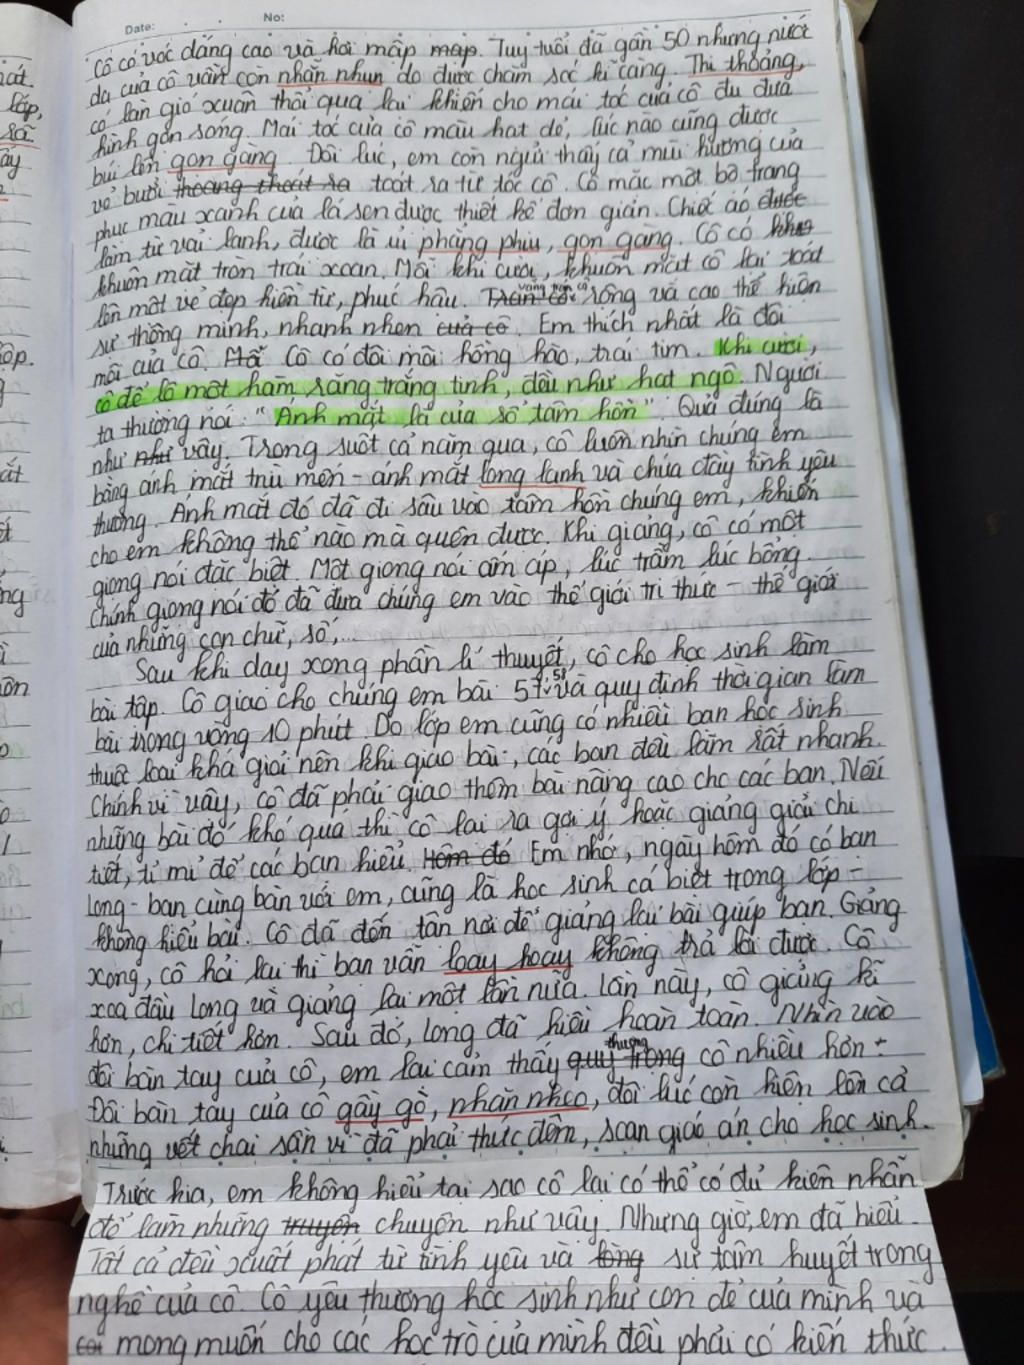 Date: No:
Cô có vóc dáng cao và hơi mập map. Tuy tuổi đã gần 50 nhưng nước
da của cô vẫn còn nhăn nhun do được chăm sóc kĩ càng. Thi thoảng,
có làn gió xuân thổi qua lại khiến cho mái tóc của cô đu đưa
hình gợn sóng. Mái tóc của cô màu hạt dẻ, lúc nào cũng được
búi lên gọn gàng. Đôi lúc, em còn ngửi thấy cả mùi hương của
vỏ bưởi thoang thoát ra toát ra từ tóc cô. Cô mặc một bộ trang
phục màu xanh của lá sen được thiết kế đơn giản. Chiếc áo được
làm từ vải lanh, được là ủi phẳng phiu, gọn gàng. Cô có
khuôn mặt tròn trái xoan. Mỗi khi cười, khuôn mặt cô lại toát
lên một vẻ đẹp hiền từ, phúc hậu. Trán cô vầng trán cô rộng và cao thể hiện
sự thông minh, nhanh nhẹn của cô. Em thích nhất là đôi
môi của cô. Cô có đôi môi hồng hào, trái tim. Khi cười,
cô để lộ một hàm răng trắng tinh, đều như hạt ngô. Người
ta thường nói: "Ánh mắt là cửa sổ tâm hồn". Quả đúng là
như như vậy. Trong suốt cả năm qua, cô luôn nhìn chúng em
bằng ánh mắt trìu mến - ánh mắt long lanh và chứa đầy tình yêu
thương. Ánh mắt đó đã đi sâu vào tâm hồn chúng em, khiến
cho em không thể nào mà quên được. Khi giảng, cô có một
giọng nói đặc biệt. Một giọng nói ấm áp, lúc trầm lúc bổng.
Chính giọng nói đó đã đưa chúng em vào thế giới tri thức - thế giới
của những con chữ, số,...
Sau khi dạy xong phần lí thuyết, cô cho học sinh làm
bài tập. Cô giao cho chúng em bài 57; 58 và quy định thời gian làm
bài trong vòng 10 phút. Do lớp em cũng có nhiều bạn học sinh
thuộc loại khá giỏi nên khi giao bài, các bạn đều làm rất nhanh.
Chính vì vậy, cô đã phải giao thêm bài nâng cao cho các bạn. Nếu
những bài đó khó quá thì cô lại ra gợi ý hoặc giảng giải chi
tiết, tỉ mỉ để các bạn hiểu. Hôm đó Em nhớ, ngày hôm đó có bạn
Long - bạn cùng bàn với em, cũng là học sinh cá biệt trong lớp -
không hiểu bài. Cô đã đến tận nơi để giảng lại bài giúp bạn. Giảng
xong, cô hỏi lại thì bạn vẫn loay hoay không trả lời được. Cô
xoa đầu Long và giảng lại một lần nữa. Lần này, cô giảng kĩ
hơn, chi tiết hơn. Sau đó, Long đã hiểu hoàn toàn. Nhìn vào
đôi bàn tay của cô, em lại cảm thấy quý trọng thương cô nhiều hơn.
Đôi bàn tay của cô gầy gò, nhăn nheo, đôi lúc còn hiện lên cả
những vết chai sạn vì đã phải thức đêm, soạn giáo án cho học sinh.
Trước kia, em không hiểu tại sao cô lại có thể có đủ kiên nhẫn
để làm những truyện chuyện như vậy. Nhưng giờ, em đã hiểu.
Tất cả đều xuất phát từ tình yêu và lòng sự tâm huyết trong
nghề của cô. Cô yêu thương học sinh như con đẻ của mình và
mong muốn cho các học trò của mình đều phải có kiến thức.